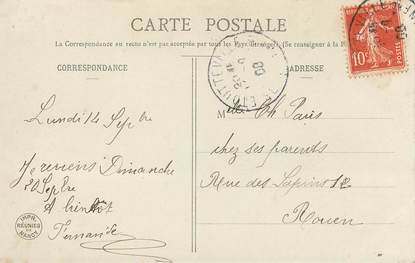 CARTE POSTALE
La Correspondance au recto n'est pas acceptée par tous les Pays Étrangers. (Se renseigner à la P
CORRESPONDANCE
ADRESSE
10
Lundi 14 Sepbre
Je reviens Dimanche
20 Sepbre
A bientôt
Fernande
IMPR.
RÉUNIES
NANCY
Mlle Ch Paris
chez ses parents
Rue des Sapins 12
Rouen